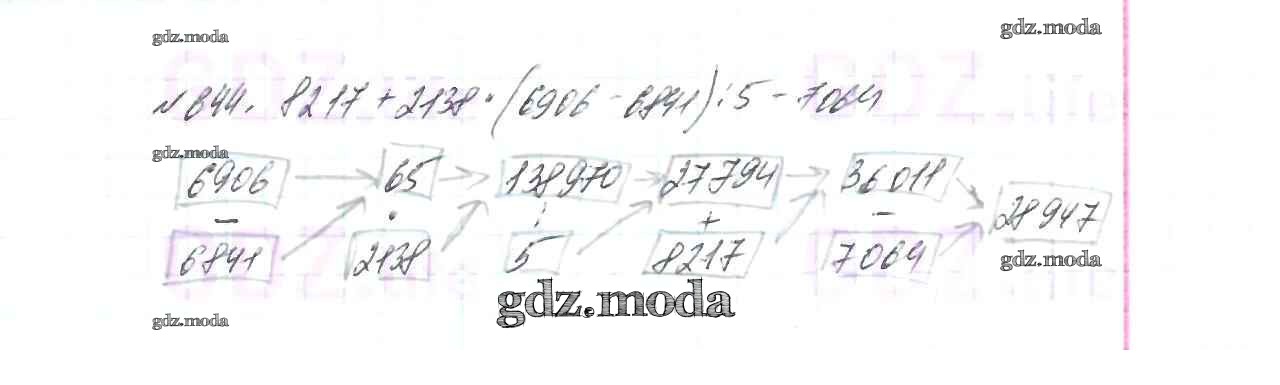 gdz.moda
gdz.moda
№ 844. 8217 + 2138 · (6906 - 6841) : 5 - 7064
gdz.moda
6906 → 65 → 138970 → 27794 → 36011 → 28947
- · : + -
6841 2138 5 8217 7064
gdz.moda
gdz.moda
gdz.moda